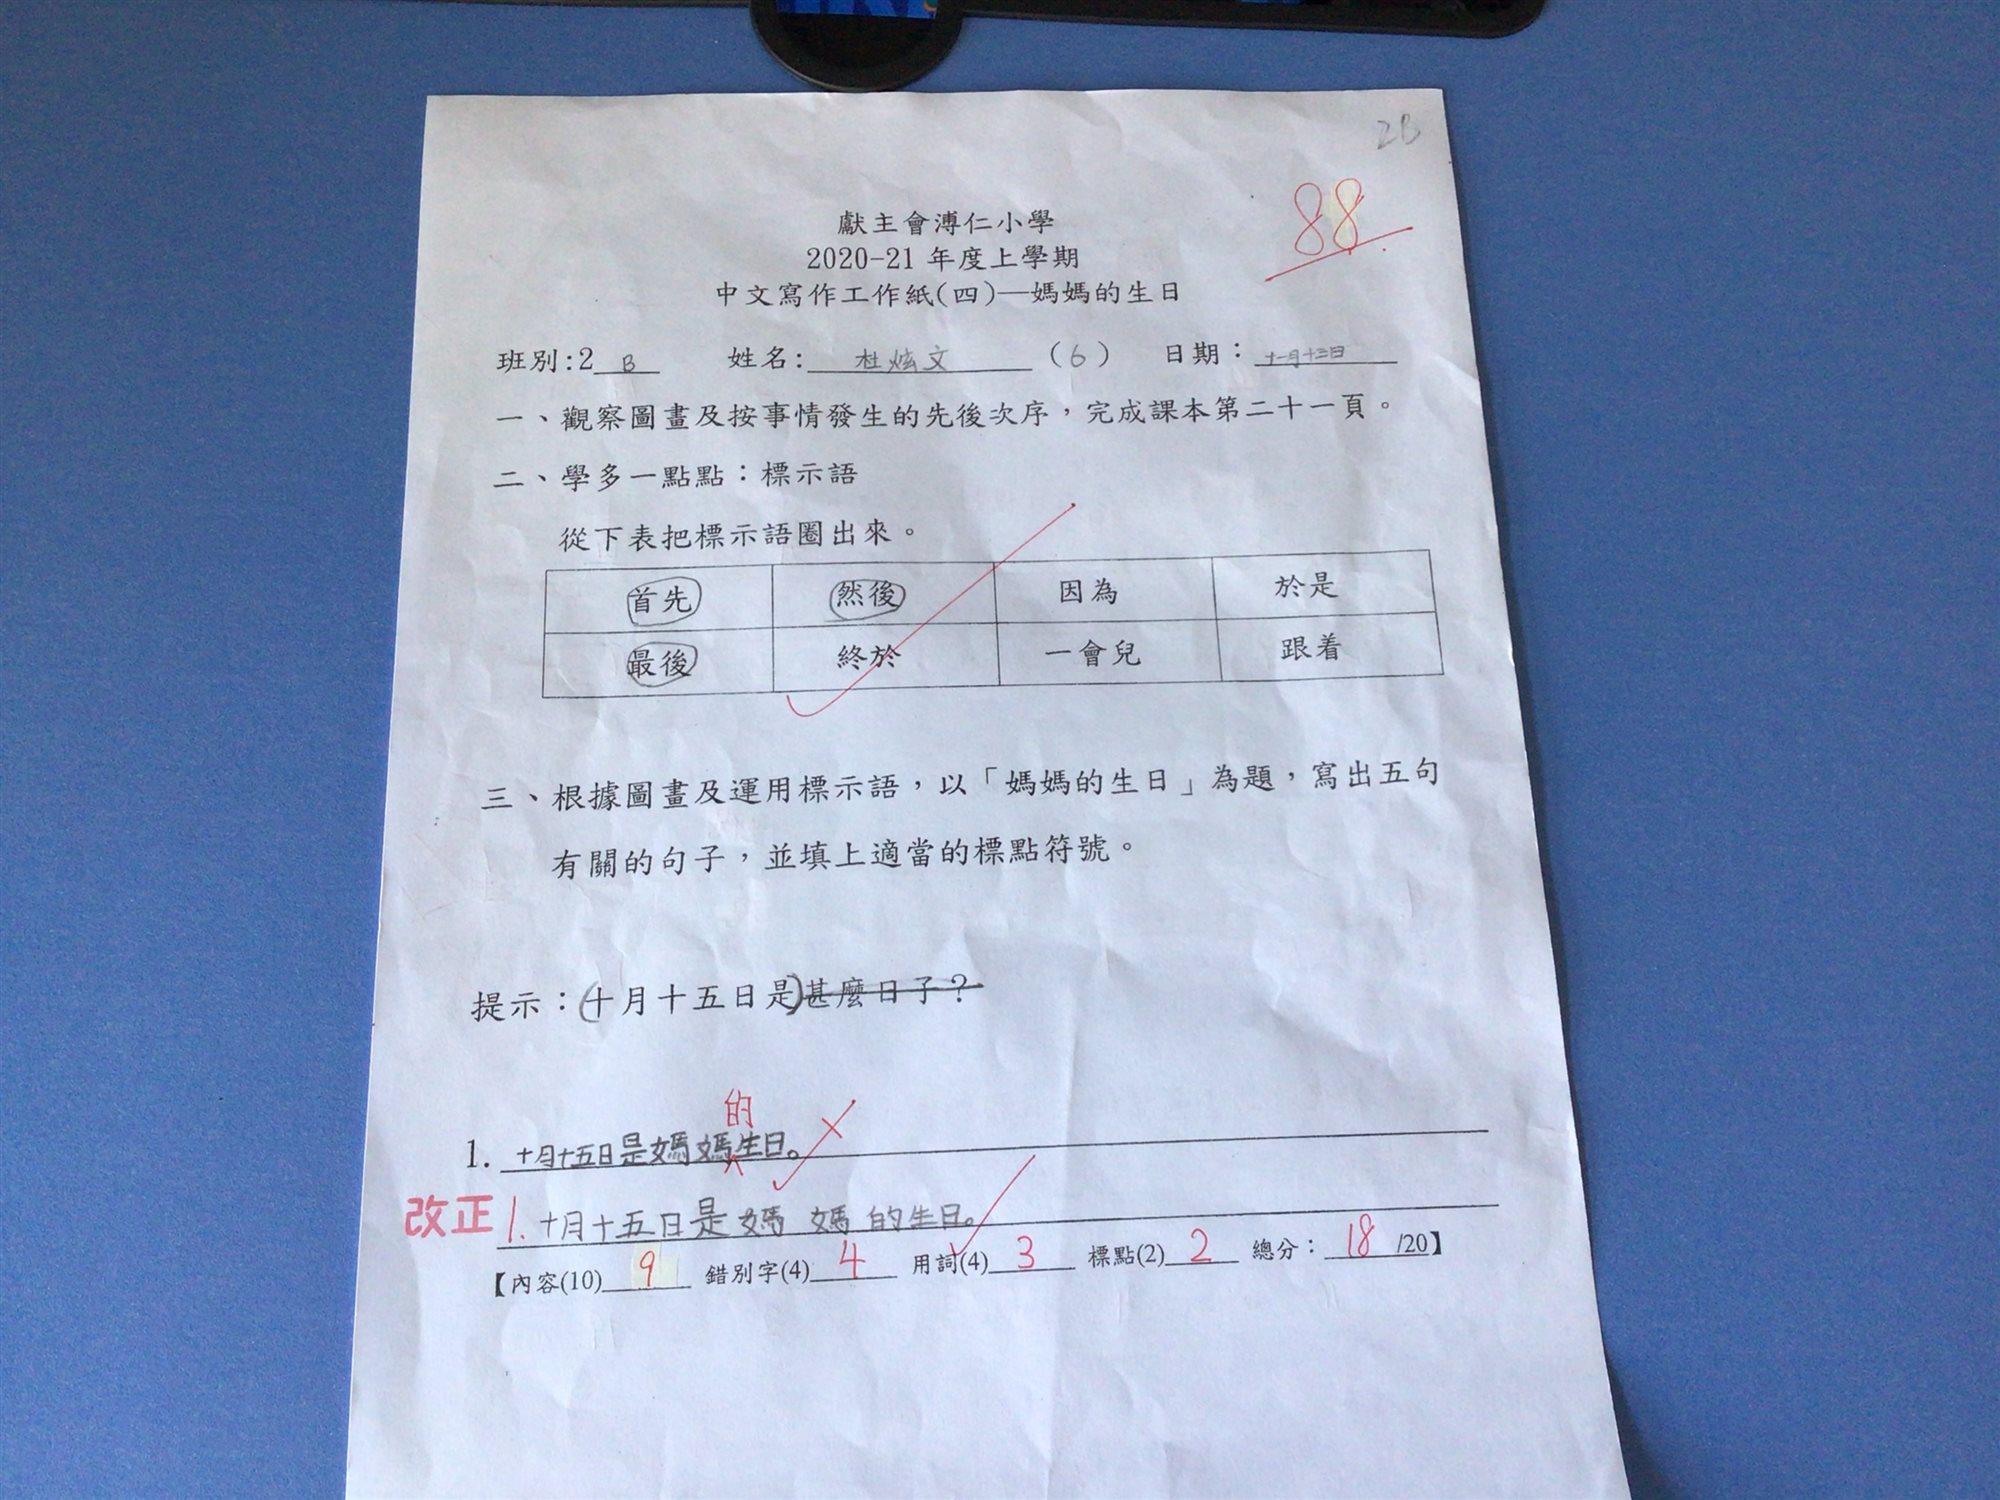 2B
88
獻主會溥仁小學
2020-21 年度上學期
中文寫作工作紙(四)—媽媽的生日
班別:2 B 姓名: 杜炫文 (6) 日期: 十一月十三日
一、觀察圖畫及按事情發生的先後次序，完成課本第二十一頁。
二、學多一點點：標示語
從下表把標示語圈出來。
首先 然後 因為 於是
最後 終於 一會兒 跟着
三、根據圖畫及運用標示語，以「媽媽的生日」為題，寫出五句
有關的句子，並填上適當的標點符號。
提示：(十月十五日是)甚麼日子？
的
1. 十月十五日是媽媽生日。
改正 1. 十月十五日是媽媽的生日。
【內容(10) 9 錯別字(4) 4 用詞(4) 3 標點(2) 2 總分： 18 /20】